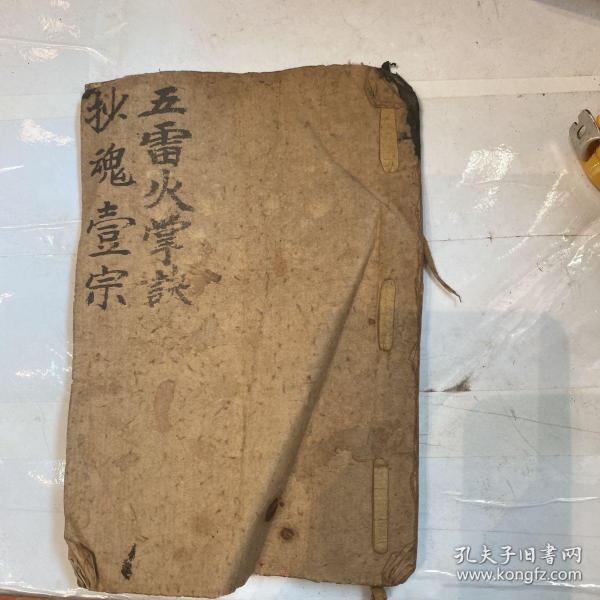 五雷火掌訣
抄魂壹宗
孔夫子旧书网
www.kongfz.com